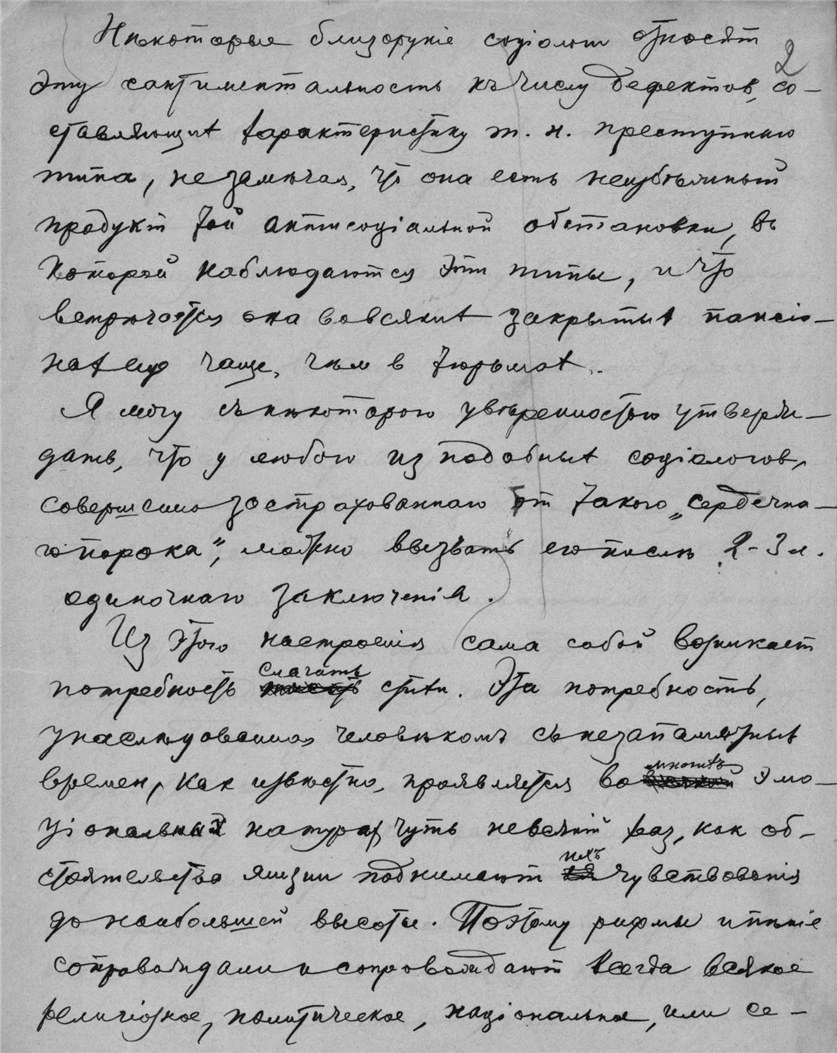 2
Нѣкоторые близорукіе соціологи относят
эту сантиментальность къ числу дефектов, со-
ставляющих характеристику т. н. преступнаго
типа, не замѣчая, что она есть неизбѣжный
продукт той антисоціальной обстановки, въ
которой наблюдаются эти типы, и что
встрѣчается она во всяких закрытых пансіо-
нах еще чаще, чѣм в тюрьмах.
Я могу съ нѣкоторою увѣренностью утверж-
дать, что у любого из подобных соціологов,
совершенно застрахованнаго от такого „сердечна-
го порока", можно вызвать его послѣ 2-3 л.
одиночнаго заключенія.
Из этого настроенія сама собой возникает
потребность слагать стихи. Эта потребность,
унаслѣдованная человѣкомъ съ незапамятных
времен, как извѣстно, проявляется во многихъ эмо-
ціональных натурах чуть не всякій раз, как об-
стоятельства жизни поднимают ихъ чувствованія
до наибольшей высоты. Поэтому рифмы и пѣніе
сопровождали и сопровождают всегда всякое
религіозное, политическое, національное, или се-